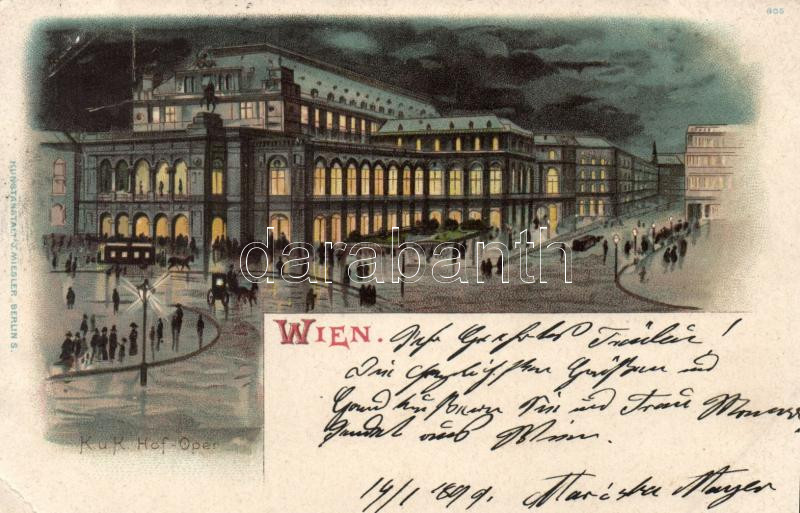 605
KUNSTANSTALT J. MIESLER, BERLIN S.
darabanth
WIEN.
K. u. K. Hof-Oper
Sehr Geehrtes Fräulein!
Die herzlichsten Grüßen und
Handküsse an Sie und Frau
sendet aus Wien.
14/1 1899. Mariska Mayer